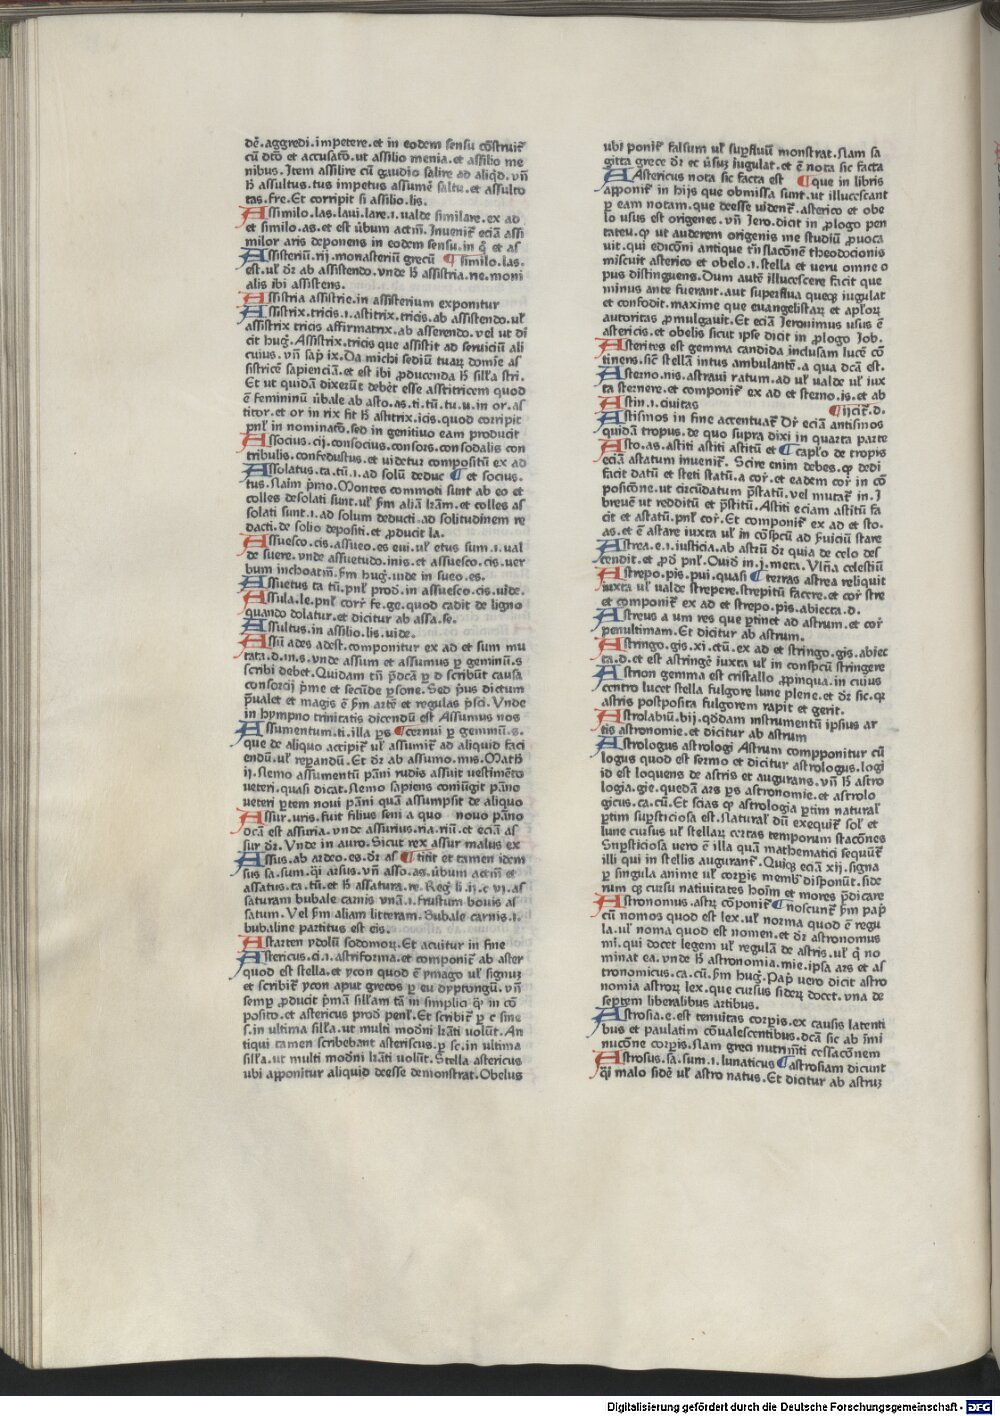 dē.aggredi.impetere.et in eodem sensu cōstruit᷑
cū dtō et accusatō.ut assilio menia.et assilio me
nibus.Item assilire cū gaudio salire ad aliqd.vñ
h̄ assultus.tus impetus assumē saltu.et assulto
tas.fre.Et corripit si assilio.lis.
Assimilo.las.laui.lare.i.ualde similare.ex ad
et similo.as.et est ūbum actiū.Inuenit᷑ eciā assi
milor aris deponens in eodem sensu.in q̄ et as
Assisteriū.rij.monasteriū grecū ¶ similo.las.
est.ul̄ dr̄ ab assistendo.vnde h̄ assistria.ne.moni
alis ibi assistens.
Assistria assistrie.in assisterium exponitur
Assistrix.tricis.i.astitrix.tricis.ab assistendo.ul̄
assistrix tricis affirmatrix.ab asserendo.vel ut di
cit hug̃.Assistrix.tricis que assistit ad seruiciū ali
cuius.vñ sap̄ ix.Da michi sediū tuaꝝ domīe as
sistricē sapienciā.et est ibi ꝓducenda h̄ sill̄a stri.
Et ut quidā dixerūt debēt esse asstitricem quod
ē femininū ūbale ab asto.as.ti.tū.tu.u.in or.as
titor.et or in rix fit h̄ astitrix.icis.quod corripit
pnl̄ in nominatō.sed in genitiuo eam producit
Associus.cij.consocius.consors.consodalis con
tribulis.confedustus.et uidetur compositū ex ad
Assolatus.ta.tū.i.ad solū deduc ¶ et socius.
tus.Naim p̄mo.Montes commoti sunt ab eo et
colles desolati sunt.ul̄ s̄m aliā l̄rām.et colles as
solati sunt.i.ad solum deducti.ad solitudinem re
dacti.de solio depositi.et ꝓducit la.
Assuesco.cis.assueo.es eui.ul̄ etus sum.i.ual
de suere.vnde assuetudo.inis.et assuesco.cis.uer
bum inchoatiū.s̄m hug̃.inde in sueo.es.
Assuetus ta tū.pnl̄ prod̄.in assuesco.cis.uide.
Assula.le.pnl̄ corr̄ fe.ge.quod cadit de ligno
quando dolatur.et dicitur ab assa.se.
Assultus.in assilio.lis.uide.
Assū ades adest.componitur ex ad et sum mu
tata.d.in.s.vnde assum et assumus ꝑ geminū.s
scribi debet.Quidam tn̄ p̄dcā ꝑ d scribūt causa
consorcij p̄me et secūde ꝑsone.Sed p̄us dictum
p̄ualet et magis ē s̄m artē et regulas p̄sci.Vnde
in hympno trinitatis dicendū est Assumus nos
Assumentum.ti.illa ꝑs ¶ cernui ꝑ geminū.s.
que de aliquo accipit᷑ ul̄ assumit᷑ ad aliquid faci
endū.ul̄ reparandū.Et dr̄ ab assumo.mis.Math̄
ij.Nemo assumentū pāni rudis assuit uestimēto
ueteri.quasi dicat.Nemo sapiens coniūgit pāno
ueteri ꝑtem noui pāni quā assumpsit de aliquo
Assur.uris.fuit filius seni a quo nouo pāno
dcā est assiria.vnde assurius.ria.riū.et eciā as
sur dr̄.Vnde in auro.Sicut rex assur malus ex
Assus.ab ardeo.es.dr̄ as ¶ titit et tamen idem
sus sa.sum.q̄i arsus.vñ asso.as.ūbum actiū et
assatus.ta.tū.et h̄ assatura.re.Reg̃ li.ij.c vi.as
saturam bubale carnis vnā.i.frustum bouis as
satum.Vel s̄m aliam litteram.Bubale carnis.i.
bubaline partitus est eis.
Astarten ydolū sodomoꝝ.Et acuitur in fine
Astericus.ci.i.astriforma.et componit᷑ ab aster
quod est stella.et ycon quod ē ymago ul̄ signuꝫ
et scribit᷑ ycon aput grecos ꝑ eu dyptongū.vñ
semꝑ ꝓducit p̄mā sill̄am tā in simplici q̄ in cō
posito.et astericus prod̄ penl̄.Et scribit᷑ ꝑ c sine
s.in ultima sill̄a.ut multi mod̄ni l̄rāti volūt.An
tiqui tamen scribebant asteriscus.ꝑ sc.in ultima
sill̄a.ut multi mod̄ni l̄rāti volūt.Stella astericus
ubi apponitur aliquid deesse demonstrat.Obelus
ubi ponit᷑ falsum ul̄ suꝑfluū monstrat.Nam sa
gitta grece dr̄ ec ūsuꝫ iugulat.et ē nota sic facta
Astericus nota sic facta est ¶ que in libris
apponit᷑ in hijs que obmissa sunt.ut illucescant
ꝑ eam notam.que deesse uident᷑.asterico et obe
lo usus est origenes.vñ Iero.dicit in ꝓlogo pen
tateu.ꝙ ut auderem origenis me studiū ꝓuoca
uit.qui edicōni antique trāslacōnem theodocionis
miscuit asterico et obelo.i.stella et ueru omne o
pus distinguens.Dum autē illucescere facit que
minus ante fuerant.aut superflua queqꝫ iugulat
et confodit.maxime que euangelistaꝝ et apl̄oꝝ
autoritas ꝓmulgauit.Et eciā Ieronimus usus ē
astericis.et obelis sicut ipse dicit in ꝓlogo Iob.
Asterites est gemma candida inclusam lucē cō
tinens.sic̄ stellā intus ambulantē.a qua dcā est.
Asterno.nis.astraui ratum.ad ul̄ ualde ul̄ iux
ta sternere.et componit᷑ ex ad et sterno.is.et ab
Astin.i.ciuitas ¶ ijcit᷑.d.
Astismos in fine accentuat᷑ Dr̄ eciā antismos
quidā tropus.de quo supra dixi in quarta parte
Asto.as.astiti astiti astitū et ¶ capl̄o de tropis
eciā astatum inuenit᷑.Scire enim debes.ꝙ dedi
facit datū et steti statū.a cor̄.et eadem cor̄ in cō
posicōne.ut circūdatum p̄statū.vel mutat᷑ in.I
breuē ut redditū et p̄stitū.Astiti eciam astitū fa
cit et astatū.pnl̄ cor̄.Et componit᷑ ex ad et sto.
as.et ē astare iuxta ul̄ in cōsp̄cū ad s̄uiciū stare
Astrea.e.i.iusticia.ab astrū dr̄ quia de celo des
cendit.et ꝓd̄ pnl̄.Ouid̄ in.j.meta.Vltīa celestiū
Astrepo.pis.pui.quasi ¶ terras astrea reliquit
iuxta ul̄ ualde strepere.strepitū facere.et cor̄ stre
et componit᷑ ex ad et strepo.pis.abiecta.d.
Astreus a um res que ꝑtinet ad astrum.et cor̄
penultimam.Et dicitur ab astrum.
Astringo.gis.xi.ctū.ex ad et stringo.gis.abiec
ta.d.et est astringē iuxta ul̄ in consp̄cū stringere
Astrion gemma est cristallo ꝓpinqua.in cuius
centro lucet stella fulgore lune plene.et dr̄ sic.ꝙ
astris postposita fulgorem rapit et gerit.
Astrolabiū.bij.qd̄dam instrumentū ipsius ar
tis astronomie.et dicitur ab astrum
Astrologus astrologi Astrum compponitur cū
logus quod est sermo et dicitur astrologus.logi
id est loquens de astris et augurans.vñ h̄ astro
logia.gie.quedā ars ꝑs astronomie.et astrolo
gicus.ca.cū.Et scias ꝙ astrologia ꝑtim natural̄
ꝑtim suꝑsticiosa est.Natural̄ dū exequit᷑ sol̄ et
lune cursus ul̄ stellaꝝ certas temporum stacōnes
Suꝑsticiosa uero ē illa quā mathematici sequūt᷑
illi qui in stellis augurant᷑.Quiqꝫ eciā xij.signa
ꝑ singula anime ul̄ corꝑis memb̄ disponūt.side
rum qꝫ cursu natiuitates hoīm et mores p̄dicare
Astronomus.astꝝ cōponit᷑ ¶ noscunt᷑ s̄m pap̄
cū nomos quod est lex.ul̄ norma quod ē regu
la.ul̄ noma quod est nomen.et dr̄ astronomus
mi.qui docet legem ul̄ regulā de astris.ul̄ q̄ no
minat ea.vnde h̄ astronomia.mie.ipsa ars et as
tronomicus.ca.cū.s̄m hug̃.Pap̄ vero dicit astro
nomia astroꝝ lex.que cursus sideꝝ docet.vna de
septem liberalibus artibus.
Astrosia.e.est tenuitas corꝑis.ex causis latenti
bus et paulatim cōualescentibus.dcā sic ab s̄mi
nucōne corꝑis.Nam greci nutrimēti cessacōnem
Astrosus.sa.sum.i.lunaticus ¶ astrosiam dicunt
q̄i malo sidē ul̄ astro natus.Et dicitur ab astruꝫ
Digitalisierung gefördert durch die Deutsche Forschungsgemeinschaft - DFG